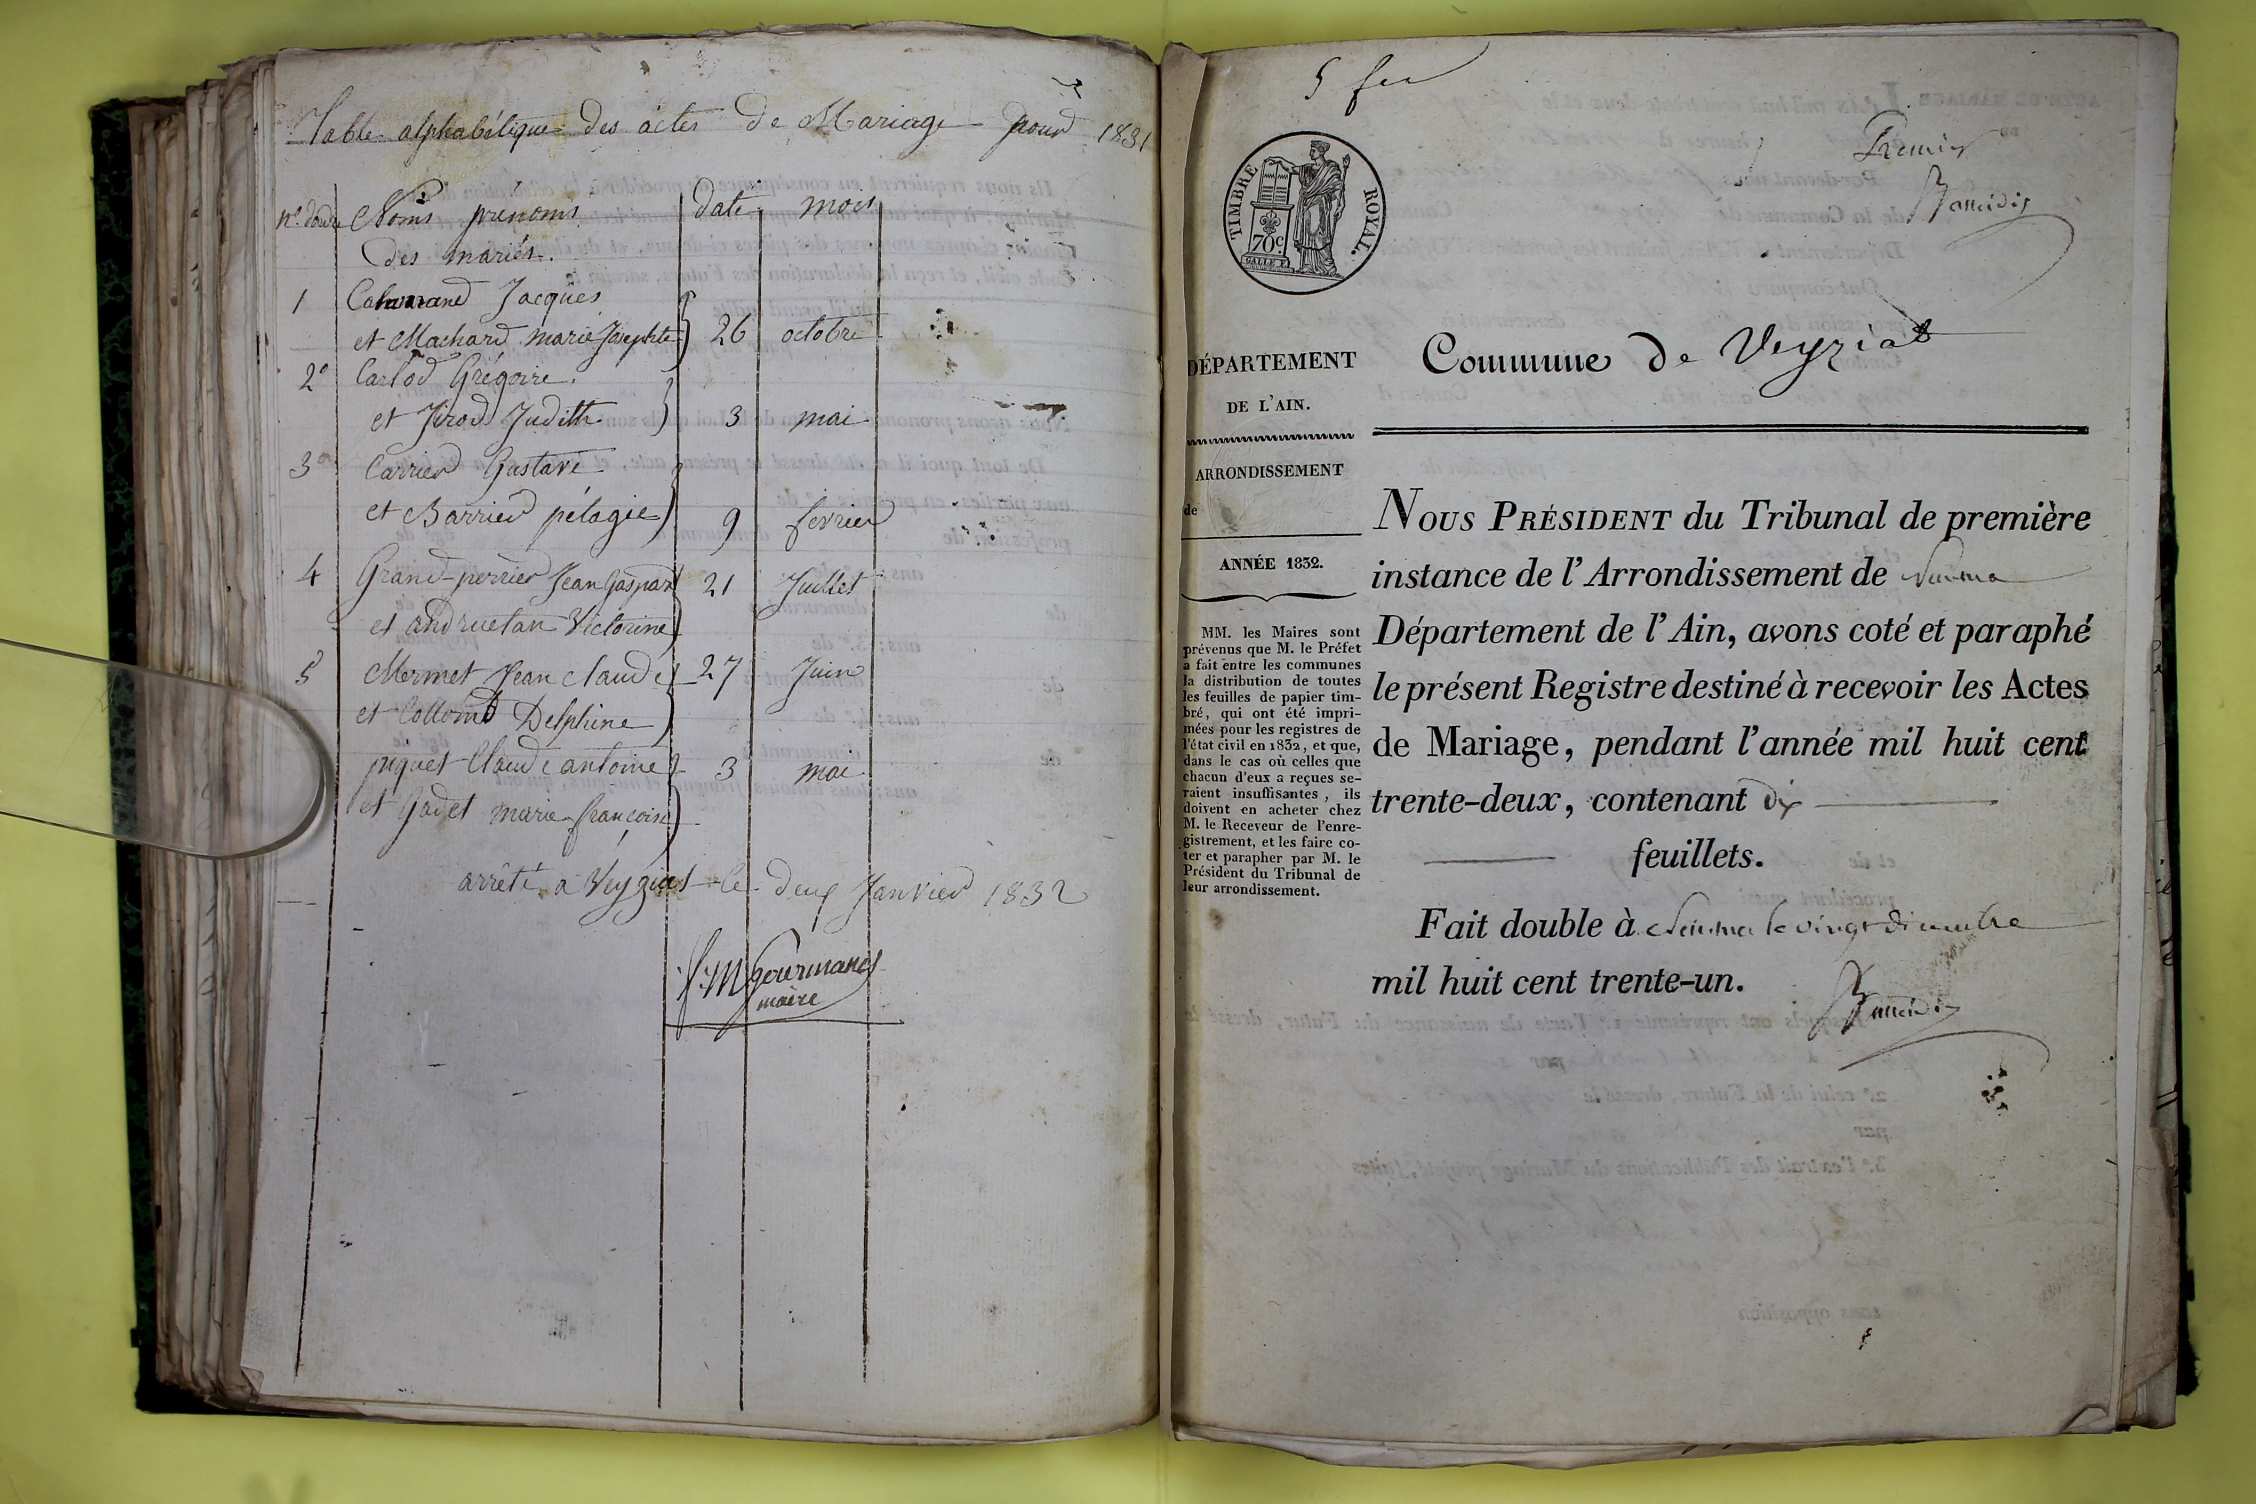 Table alphabétique des actes de Mariage pour 1831
Noms prénoms date mois
des mariés.
1 Jacques
et Machard marie Josephte 26 octobre
2° Carlod Grégoire.
et Girod Judith 3 mai
3° Carrier Gustave
et Barrier pélagie 9 fevrier
4 Grand-perrier Jean Gaspard 21 Juillet
et andruetan Victorine
5 Mermet Jean Claude 27 Juin
et Collomb Delphine
piquet Claude antoine 3 mai
et Gadet marie francoise
arrêté a Veyziat le deux Janvier 1832
J. M Gourmand
maire
Premier
TIMBRE ROYAL.
70c
GALLE F.
Commune de Veyziat
DÉPARTEMENT
DE L'AIN.
ARRONDISSEMENT
de
ANNÉE 1832.
MM. les Maires sont
prévenus que M. le Préfet
a fait entre les communes
la distribution de toutes
les feuilles de papier tim-
bré, qui ont été impri-
mées pour les registres de
l'état civil en 1832, et que,
dans le cas où celles que
chacun d'eux a reçues se-
raient insuffisantes, ils
doivent en acheter chez
M. le Receveur de l'enre-
gistrement, et les faire co-
ter et parapher par M. le
Président du Tribunal de
leur arrondissement.
NOUS PRÉSIDENT du Tribunal de première
instance de l'Arrondissement de Nantua
Département de l'Ain, avons coté et paraphé
le présent Registre destiné à recevoir les Actes
de Mariage, pendant l'année mil huit cent
trente-deux, contenant dix
feuillets.
Fait double à Nantua le vingt décembre
mil huit cent trente-un.